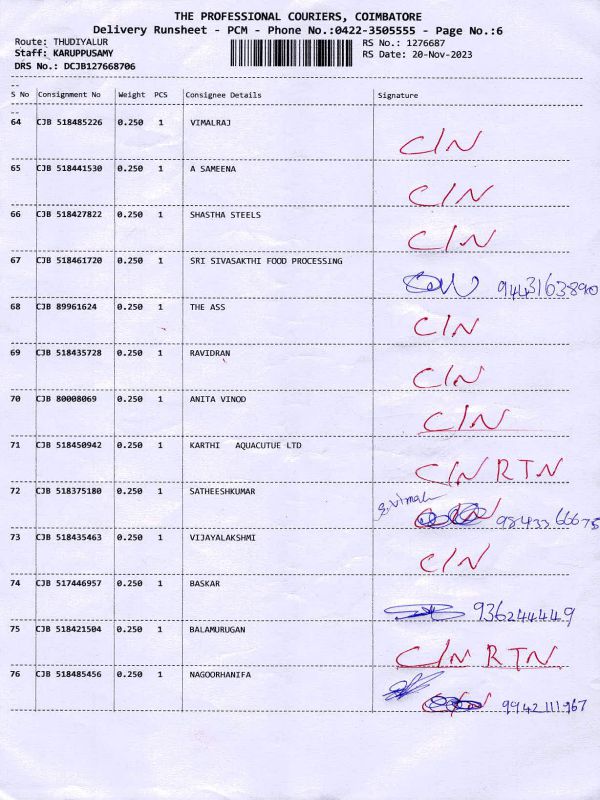 THE PROFESSIONAL COURIERS, COIMBATORE
Delivery Runsheet - PCM - Phone No.:0422-3505555 - Page No.:6
Route: THUDIYALUR RS No.: 1276687
Staff: KARUPPUSAMY RS Date: 20-Nov-2023
DRS No.: DCJB127668706
--
S No Consignment No Weight PCS Consignee Details Signature
--
64 CJB 518485226 0.250 1 VIMALRAJ C/N
65 CJB 518441530 0.250 1 A SAMEENA C/N
66 CJB 518427822 0.250 1 SHASTHA STEELS C/N
67 CJB 518461720 0.250 1 SRI SIVASAKTHI FOOD PROCESSING 9443163890
68 CJB 89961624 0.250 1 THE ASS C/N
69 CJB 518435728 0.250 1 RAVIDRAN C/N
70 CJB 80008069 0.250 1 ANITA VINOD C/N
71 CJB 518450942 0.250 1 KARTHI AQUACUTUE LTD C/N RTN
72 CJB 518375180 0.250 1 SATHEESHKUMAR C/N 9843366675
73 CJB 518435463 0.250 1 VIJAYALAKSHMI C/N
74 CJB 517446957 0.250 1 BASKAR 936244449
75 CJB 518421504 0.250 1 BALAMURUGAN C/N RTN
76 CJB 518485456 0.250 1 NAGOORHANIFA C/N 9942111967